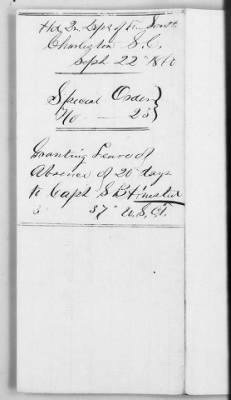 Hd Qr Dept of the South
Charleston S.C.
Sept 22" 186
Special Order }
No — 25 }
Granting Leave of
Absence of 20 days
to Capt S B
37" U.S.C.T.